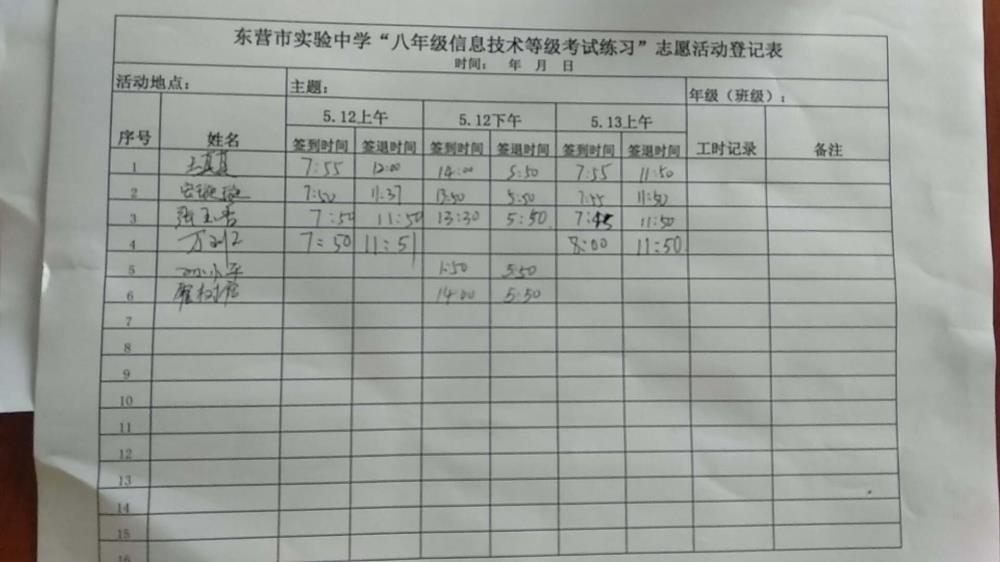 东营市实验中学“八年级信息技术等级考试练习”志愿活动登记表
时间： 年 月 日
活动地点： 主题： 年级（班级）：
5.12上午 5.12下午 5.13上午
序号 姓名 签到时间 签退时间 签到时间 签退时间 签到时间 签退时间 工时记录 备注
1 7:55 12:00 14:00 5:50 7:55 11:50
2 7:50 11:37 13:50 5:50 7:55 11:50
3 7:50 11:50 13:30 5:50 7:45 11:50
4 7:50 11:51 8:00 11:50
5 1:50 5:50
6 14:00 5:50
7
8
9
10
11
12
13
14
15
16